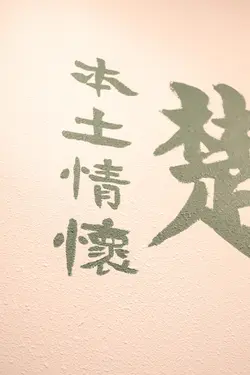 楚
本土情懷